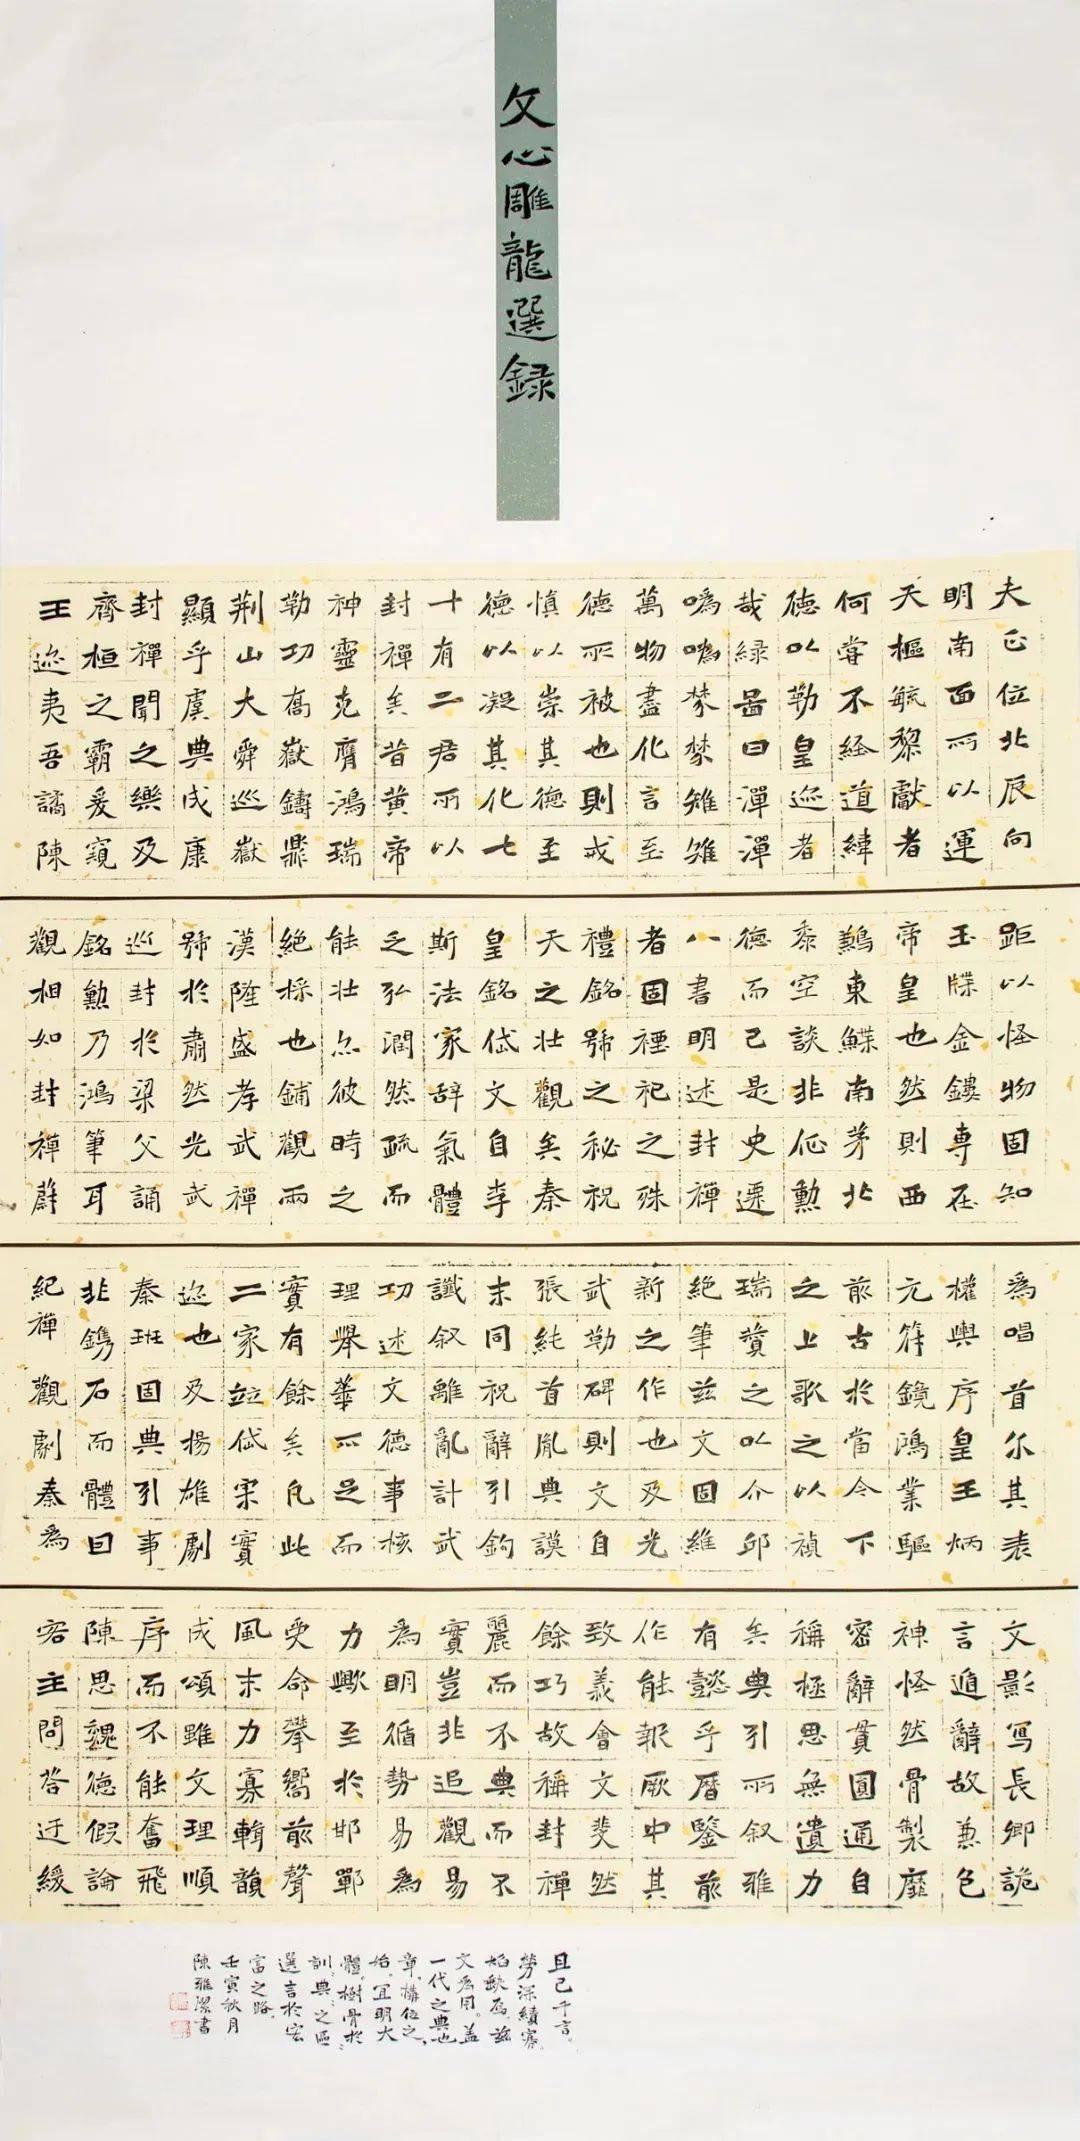 文心雕龍選録
夫正位北辰向
明南面所以運
天樞毓黎獻者
何嘗不經道緯
德以勒皇迹者
哉緑圖曰潬潬
噅噅棼棼雉雉
萬物盡化言至
德所被也則戒
慎以崇其德至
德以凝其化七
十有二君所以
封禪矣昔黄帝
神靈克膺鴻瑞
勒功喬嶽鑄鼎
荆山大舜巡嶽
顯乎虞典成康
封禪聞之樂及
齊桓之霸爰窺
王迹夷吾譎陳
距以怪物固知
玉牒金鏤專在
帝皇也然則西
鶼東鰈南茅北
黍空談非征勲
德而已是史遷
八書明述封禪
者固禋祀之殊
禮銘號之秘祝
天之壯觀矣秦
皇銘岱文自李
斯法家辭氣體
乏弘潤然疏而
能壯亦彼時之
絶採也鋪觀兩
漢隆盛孝武禪
號於肅然光武
巡封於梁父誦
銘勲乃鴻筆耳
觀相如封禪蔚
為唱首尔其表
權輿序皇王炳
元符鏡鴻業驅
前古於當今下
之上歌之以禎
瑞贊之以介邱
絶筆兹文固維
新之作也及光
武勒碑則文自
張純首胤典謨
末同祝辭引鈎
讖叙離亂計武
功述文德事核
理舉華不足而
實有餘矣凡此
二家竝岱宗實
迹也及揚雄劇
秦班固典引事
非鐫石而體因
紀禪觀劇秦為
文影寫長卿詭
言遁辭故兼包
神怪然骨製靡
密辭貫圓通自
稱極思無遺力
矣典引所叙雅
有懿乎歷鑒前
作能報厥中其
致義會文斐然
餘巧故稱封禪
麗而不典而不
實豈非追觀易
為明循勢易為
力歟至於邯鄲
受命攀嚮前聲
風末力寡輯韻
成頌雖文理順
序而不能奮飛
陳思魏德假論
客主問答迂緩
且已千言。
勞深績寡
焰缺焉。兹
文為用。蓋
一代之典也
章。構位之
始。宜明大
體。樹骨於
訓典之區
選言於宏
富之路。
壬寅秋月
陳雅潔書